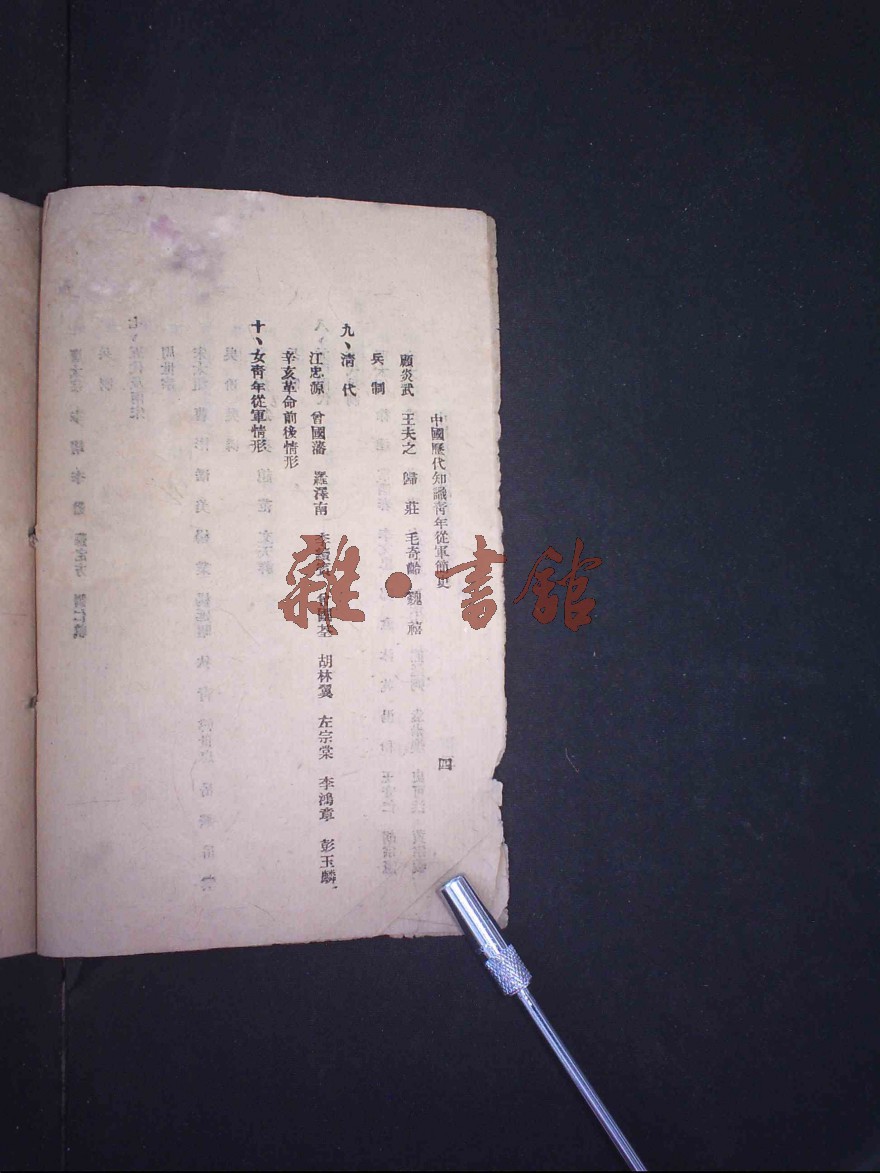 中國歷代知識靑年從軍簡史
四
顧炎武　王夫之　歸　莊　毛奇齡　魏　禧
兵　制
九、淸　代
江忠源　曾國藩　羅澤南　李續賓　曾國荃　胡林翼　左宗棠　李鴻章　彭玉麟
辛亥革命前後情形
十、女靑年從軍情形
雜·書館